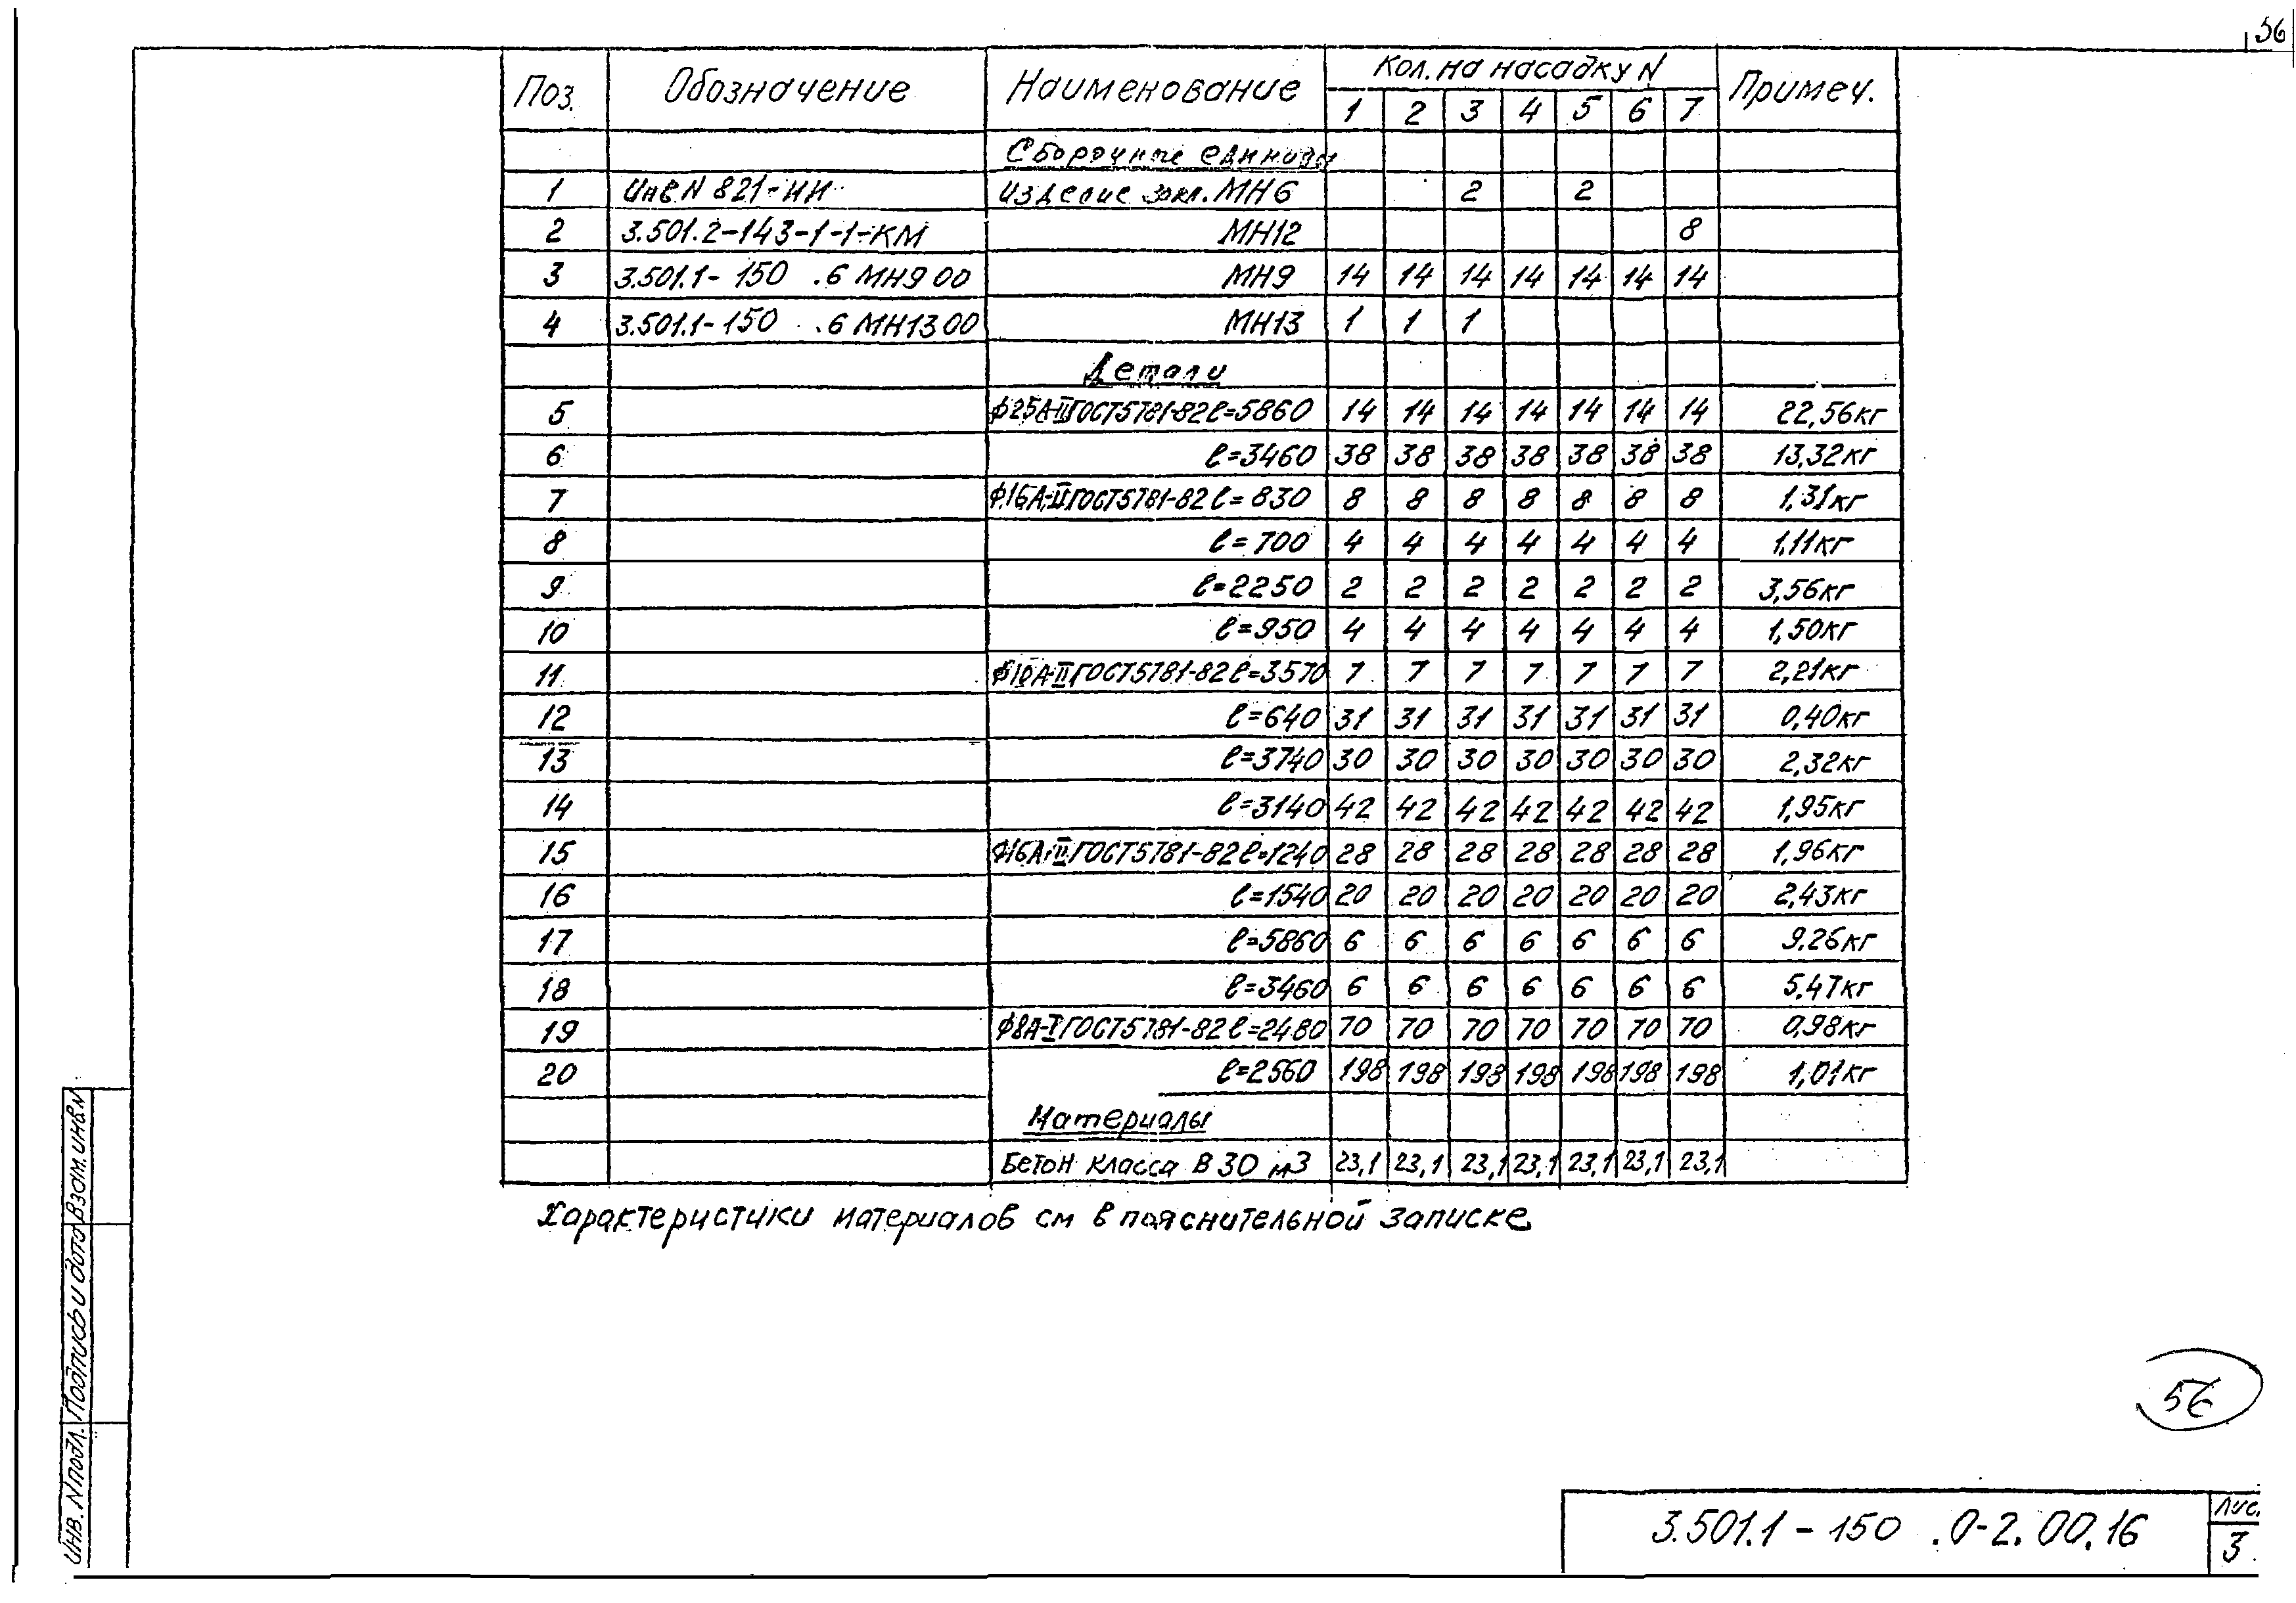 56
Поз. Обозначение Наименование Кол. на насадку N Примеч.
1 2 3 4 5 6 7
Сборочные единицы
1 Инв N 821-ИИ Изделие закл. МН6 2 2
2 3.501.2-143-1-1-КМ МН12 8
3 3.501.1-150 .6 МН9 00 МН9 14 14 14 14 14 14 14
4 3.501.1-150 .6 МН13 00 МН13 1 1 1
Детали
5 ф25А-II ГОСТ5781-82 ℓ=5860 14 14 14 14 14 14 14 22,56кг
6 ℓ=3460 38 38 38 38 38 38 38 13,32кг
7 ф16А-II ГОСТ5781-82 ℓ=830 8 8 8 8 8 8 8 1,31кг
8 ℓ=700 4 4 4 4 4 4 4 1,11кг
9 ℓ=2250 2 2 2 2 2 2 2 3,56кг
10 ℓ=950 4 4 4 4 4 4 4 1,50кг
11 ф10А-II ГОСТ5781-82 ℓ=3570 7 7 7 7 7 7 7 2,21кг
12 ℓ=640 31 31 31 31 31 31 31 0,40кг
13 ℓ=3740 30 30 30 30 30 30 30 2,32кг
14 ℓ=3140 42 42 42 42 42 42 42 1,95кг
15 ф16А-II ГОСТ5781-82 ℓ=1240 28 28 28 28 28 28 28 1,96кг
16 ℓ=1540 20 20 20 20 20 20 20 2,43кг
17 ℓ=5860 6 6 6 6 6 6 6 9,26кг
18 ℓ=3460 6 6 6 6 6 6 6 5,47кг
19 ф8А-I ГОСТ5781-82 ℓ=2480 70 70 70 70 70 70 70 0,98кг
20 ℓ=2560 198 198 198 198 198 198 198 1,01кг
Материалы
Бетон класса В 30 м3 23,1 23,1 23,1 23,1 23,1 23,1 23,1
Характеристики материалов см в пояснительной записке
Инв. N подл. Подпись и дата Взам. инв. N
56
3.501.1-150 .0-2.00.16
Лис.
3